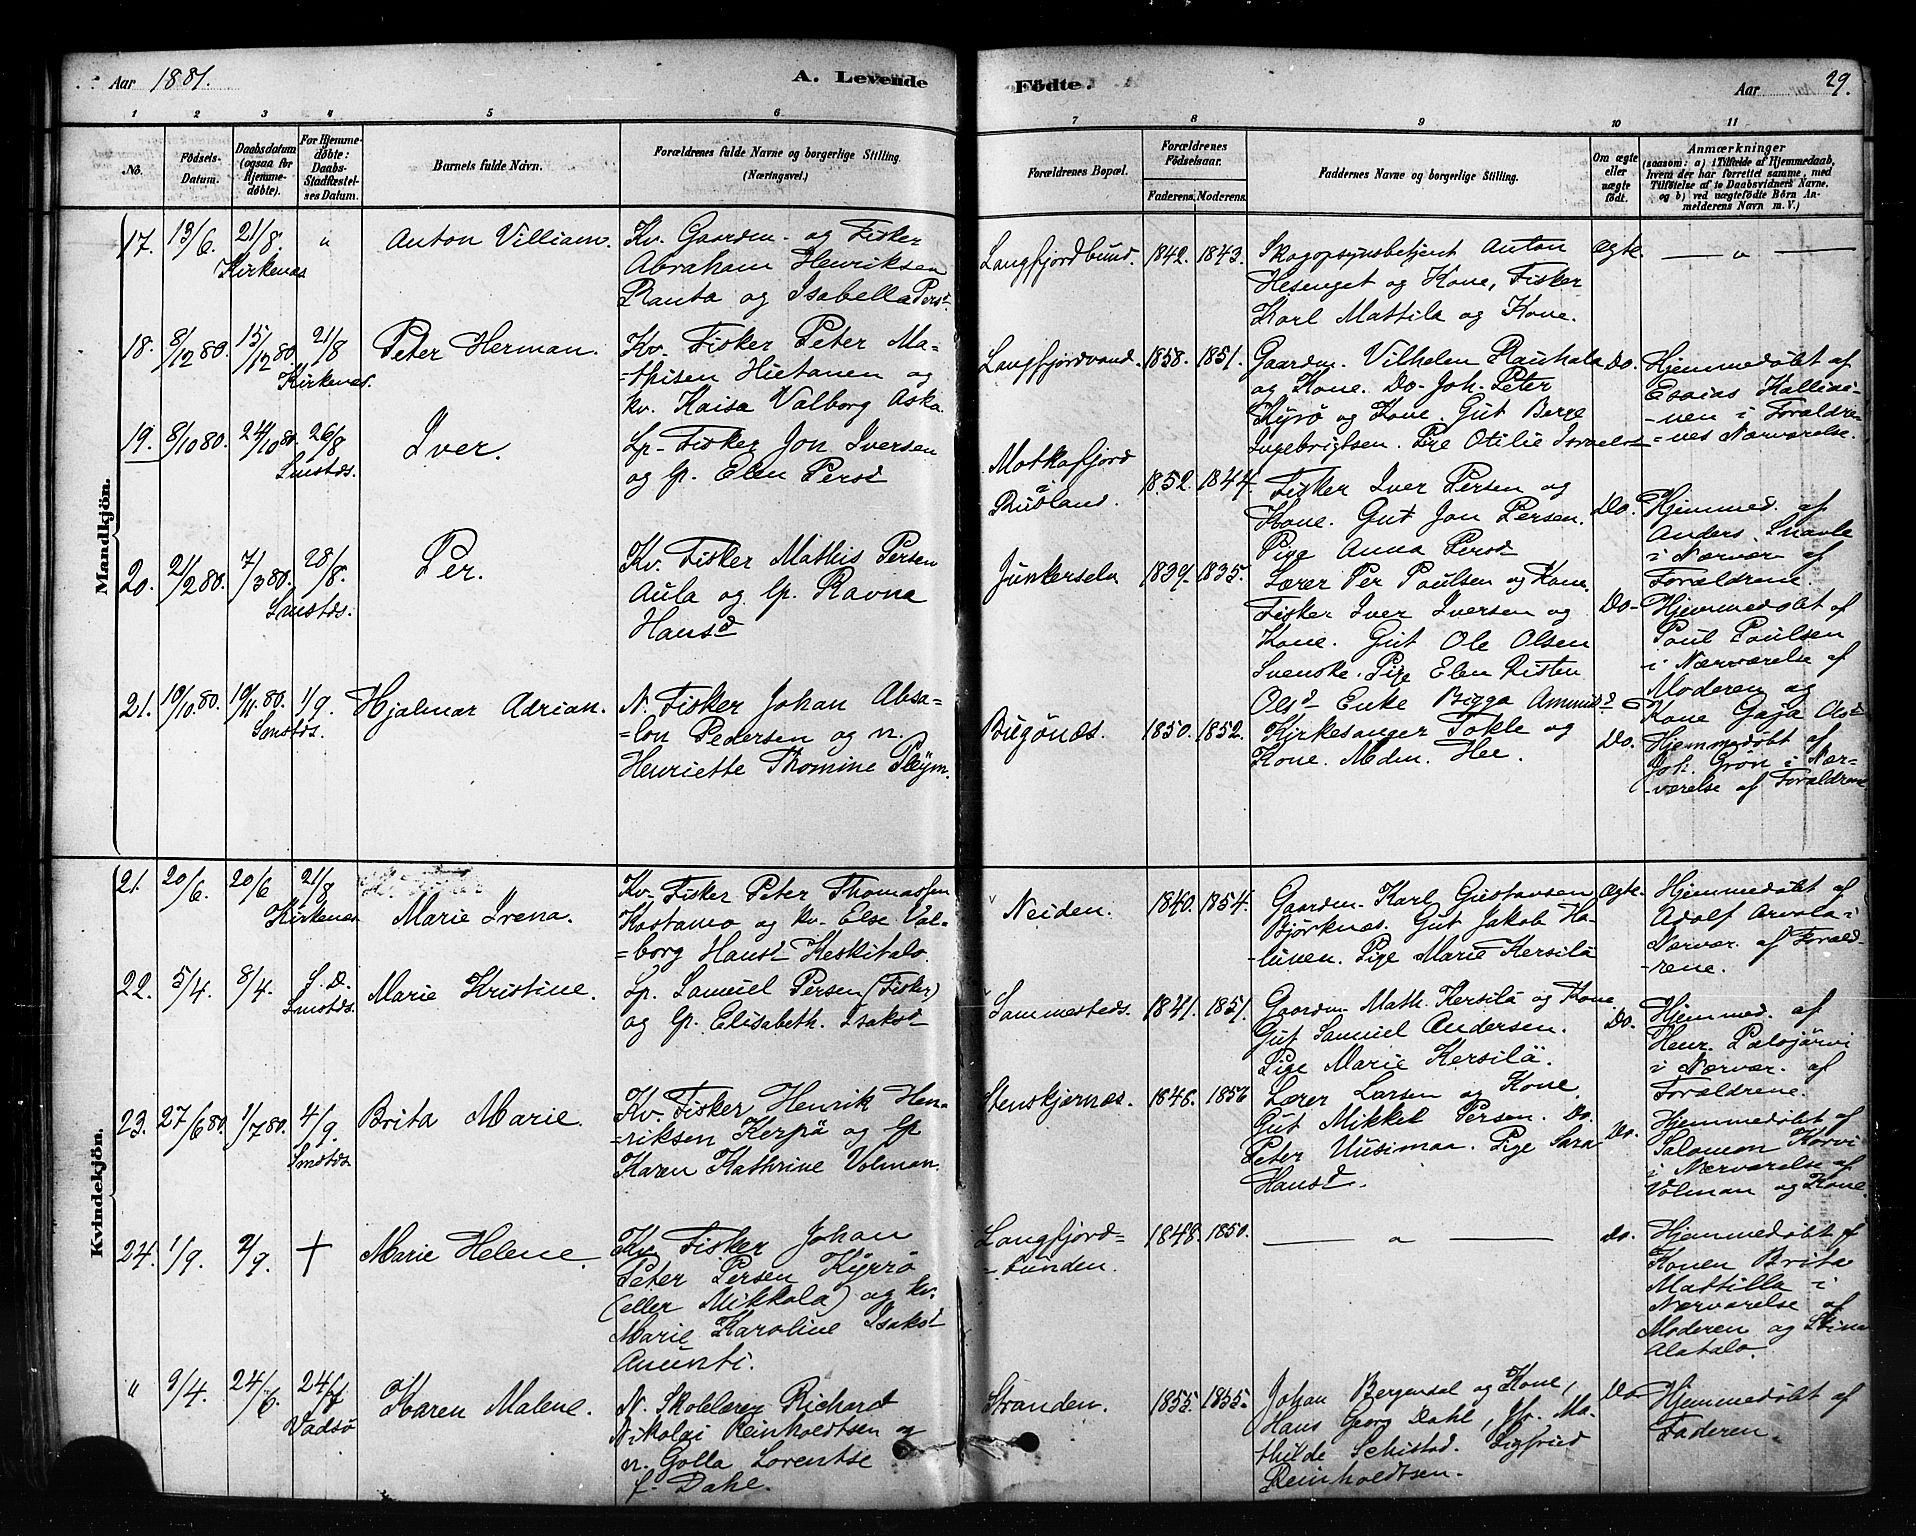 Aar 1881.
A. Levende
Fødte.
Aar
29.
1 2 3 4 5 6 7 8 9 10 11
No.
Fødsels-
Datum.
Daabsdatum
(ogsaa for
Hjemme-
døbte).
For Hjemme-
døbte:
Daabs-
Stadfæstel-
ses Datum.
Barnets fulde Navn.
Forældrenes fulde Navne og borgerlige Stilling.
(Næringsvei.)
Forældrenes Bopæl.
Forældrenes
Fødselsaar.
Faderens. Moderens.
Faddernes Navne og borgerlige Stilling.
Om ægte
eller
uægte
født.
Anmærkninger
(saasom: a) i Tilfælde af Hjemmedaab,
hvem der har forrettet samme, med
Tilføielse af to Daabsvidners Navne.
og b) ved uægtefødte Børn An-
melderens Navn m. V.)
Mandkjön.
17. 13/6. 21/8. "
Kirkenæs
Anton Villiam.
Kv. Gaardm. og Fisker
Abraham Henriksen
Ranta og Isabella Persd
Langfjordbund. 1842. 1843.
Skogopsynsbetjent Anton
Hesenget og Kone, Fisker
Karl Mattila og Kone.
ægte.
— " —
18. 8/12 80. 15/12 80. 21/8
Kirkenæs.
Peter Herman.
Kv. Fisker Peter Ma-
=thisen Hietanen og
kv. Kaisa Valborg Aska
Langfjordvand. 1858. 1851.
Gaardm. Vilhelm Rauhala
og Kone. Do. Joh. Peter
Kyrö og Kone. Gut Berge
Ingebrigtsen. Pige Otilie Israelsd
Do.
Hjemmedøbt af
Esaias Kallina-
-nen i Forældre-
=nes Nærværelse.
19. 8/10 80. 24/10 80. 26/8
Smstds.
Iver.
Lp. Fisker Jon Iversen
og lp. Elen Persd
Motkafjord
i
Rusland. 1852. 1844.
Fisker Iver Persen og
Kone. Gut Jon Persen.
Pige Anna Persd
Do.
Hjemmed. af
Anders
i Nærvær. af
Forældrene.
20. 21/2 80. 7/3 80. 28/8.
Smstds.
Per.
Kv. Fisker Mathis Persen
Aula og lp. Ravna
Hansd
Junkersela 1839. 1835.
Lærer Per Paulsen og Kone.
Fisker Iver Iversen og
Kone. Gut Ole Olsen
Svenske. Pige Elen Risten
Olsd Enke Bigga Ammundsd
Do.
Hjemmedøbt af
Poul Poulsen
i Nærværelse af
Moderen og
Kone Gaja Olsd
21. 19/10 80. 19/11 80. 1/9.
Smstds.
Hjalmar Adrian.
N. Fisker Johan Absa-
=lon Pedersen og n.
Henriette Thomine Pleym.
Bugönæs. 1850. 1852.
Kirkesanger Tokle og
Kone. Mdm. Hee.
Do.
Hjemmedøbt af
Joh. Grøn i Nær-
-værelse af Forældrene
Kvindekjön.
21. 20/6. 20/6 21/8
Kirkenæs
Marie Irena.
Kv. Fisker Peter Thomassen
Kostamo og kv. Else Val-
=borg Hansd Keskitalo.
Neiden. 1840. 1854.
Gaardm. Karl Gustavsen
Bjørknæs. Gut Jakob Ha-
-lunen. Pige Marie Kersilä
ægte.
Hjemmedøbt af
Adolf Arvola i
Nærvær. af Foræld-
-rene.
22. 5/4. 8/4. S. D.
Smstds
Marie Kristine.
Lp. Samuel Persen (Fisker)
og lp. Elisabeth Isaksd
Sammesteds. 1841. 1851.
Gaardm. Math. Kersilä og Kone
Gut Samuel Andersen.
Pige Marie Kersilä.
Do.
Hjemmed. af
Henr. Palojärvi
i Nærvær. af
Forældrene.
23. 27/6 80. 1/7 80. 4/9.
Smstds
Brita Marie.
Kv. Fisker Henrik Hen-
=riksen Kerpä og lp
Karen Kathrine Volman.
Stenskjernæs. 1848. 1856
Lærer Larsen og Kone.
Gut Mikkel Persen. Do.
Peter Uusimaa. Pige Sara
Hansd.
Do.
Hjemmedøbt af
Salomon Korvi
i Nærværelse af
Volman og Kone.
24. 1/9. 2/9. +
Marie Helene.
Kv. Fisker Johan
Peter Persen Kyrrö
(eller Mikkola) og kv.
Marie Karoline Isaksd
Anunti.
Langfjord-
=bunden. 1848. 1850.
— " —
Do.
Hjemmedøbt af
Konen Brita
Mattilla i
Nærværelse af
Moderen og Stina
Alatalo.
" 9/4. 24/6. 24/7
Vadsö
Karen Malene.
N. Skolelærer Richard
Nikolai Reinholdtsen og
n. Golla Lorentse
f. Dahl.
Stranden. 1855. 1855.
Johan Bergendal og Kone,
Hans Georg Dahl, Jfr. Ma-
thilde Schistad. Sigfried
Reinholdtsen.
Do
Hjemmedøbt af
Faderen.